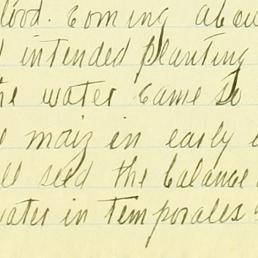 flood. Coming abou
intended planting
he water came so
maiz in early
ll seed the balance
water in Temporales